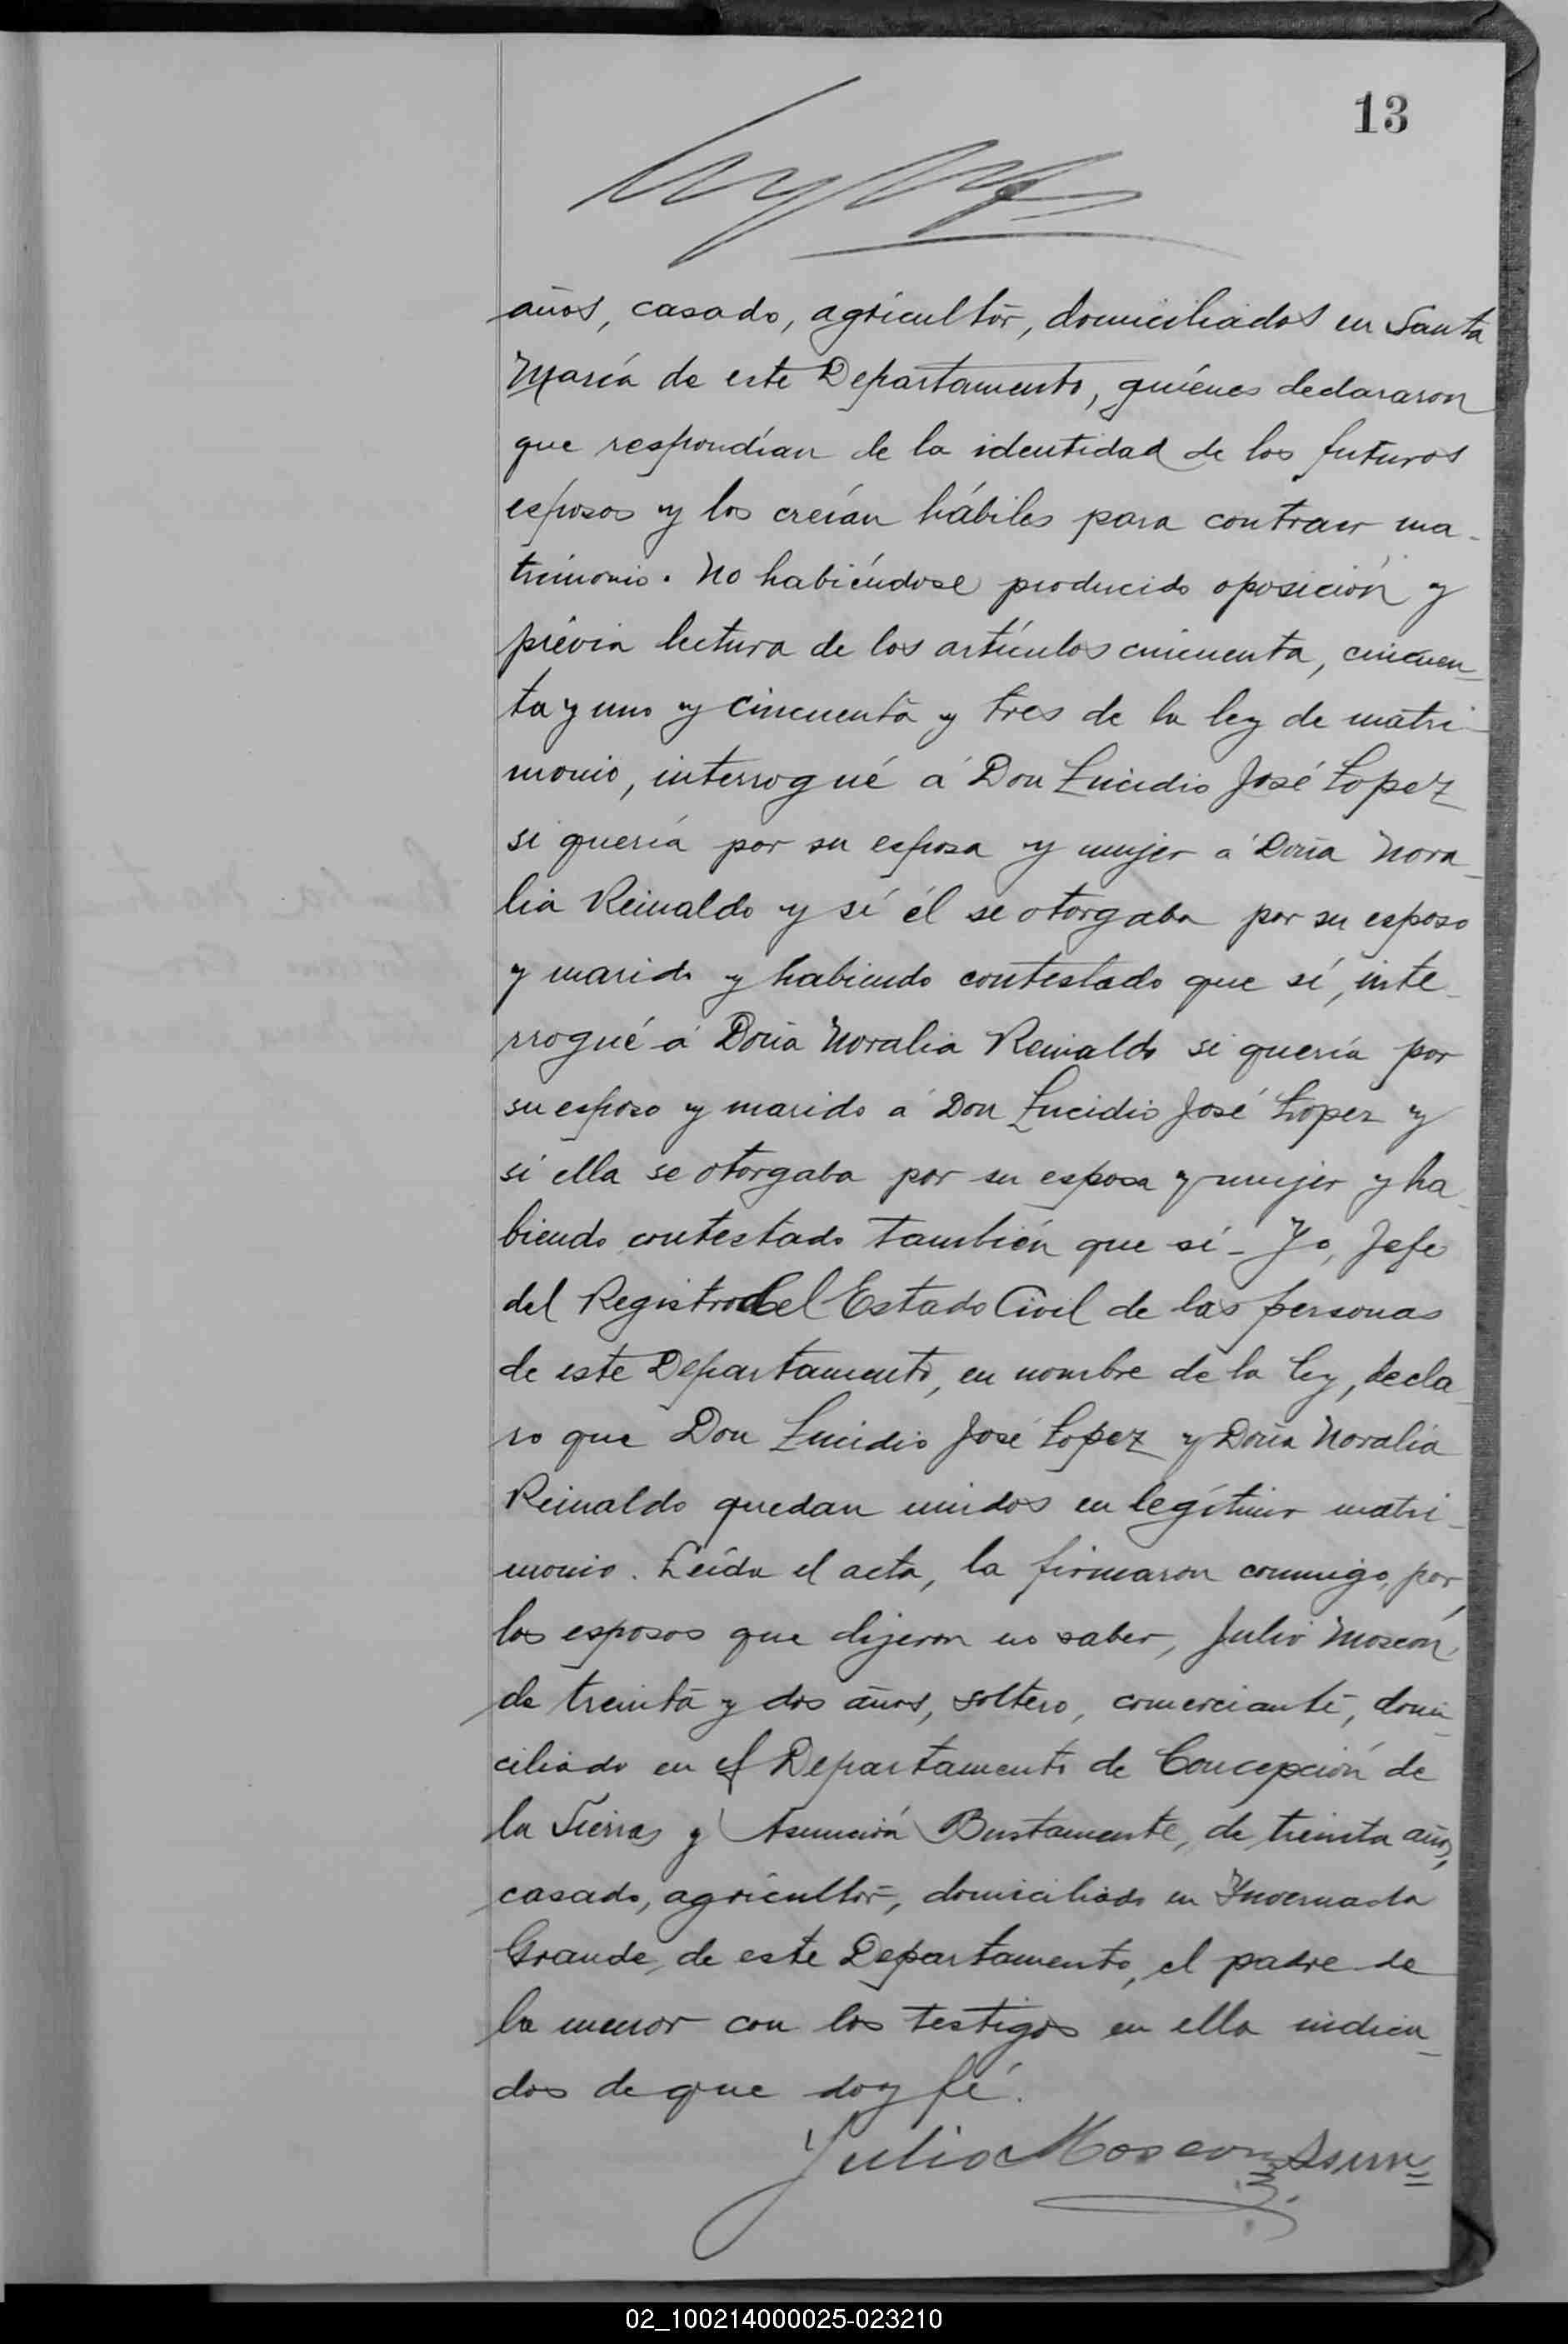 13
años, casado, agricultor, domiciliados en Santa
María de este Departamento, quiénes declararon
que respondían de la identidad de los futuros
esposos y los creían hábiles para contraer ma-
trimonio. No habiéndose producido oposición y
prévia lectura de los artículos cincuenta, cincuen-
ta y uno y cincuenta y tres de la ley de matri-
monio, interrogué á Don Lucidio José Lopez
si quería por su esposa y mujer á Doña Nora-
lia Reinaldo y sí él se otorgaba por su esposo
y marido y habiendo contestado que sí, inte-
rrogué á Doña Noralia Reinaldo si quería por
su esposo y marido á Don Lucidio José Lopez y
si ella se otorgaba por su esposa y mujer y ha-
biendo contestado también que sí - Yo, Jefe
del Registro del Estado Civil de las personas
de este Departamento, en nombre de la ley, decla-
ro que Don Lucidio José Lopez y Doña Noralia
Reinaldo quedan unidos en legítimo matri-
monio. Leída el acta, la firmaron conmigo, por
los esposos que dijeron no saber, Julio Moscón,
de treinta y dos años, soltero, comerciante, domi-
ciliado en el Departamento de Concepción de
la Sierra y Asunción Bustamente, de treinta años,
casado, agricultor, domiciliado en Invernada
Grande, de este Departamento, el padre de
la menor con los testigos en ella indica-
dos de que doy fé.
Julio Moscon Asun=
02_100214000025-023210